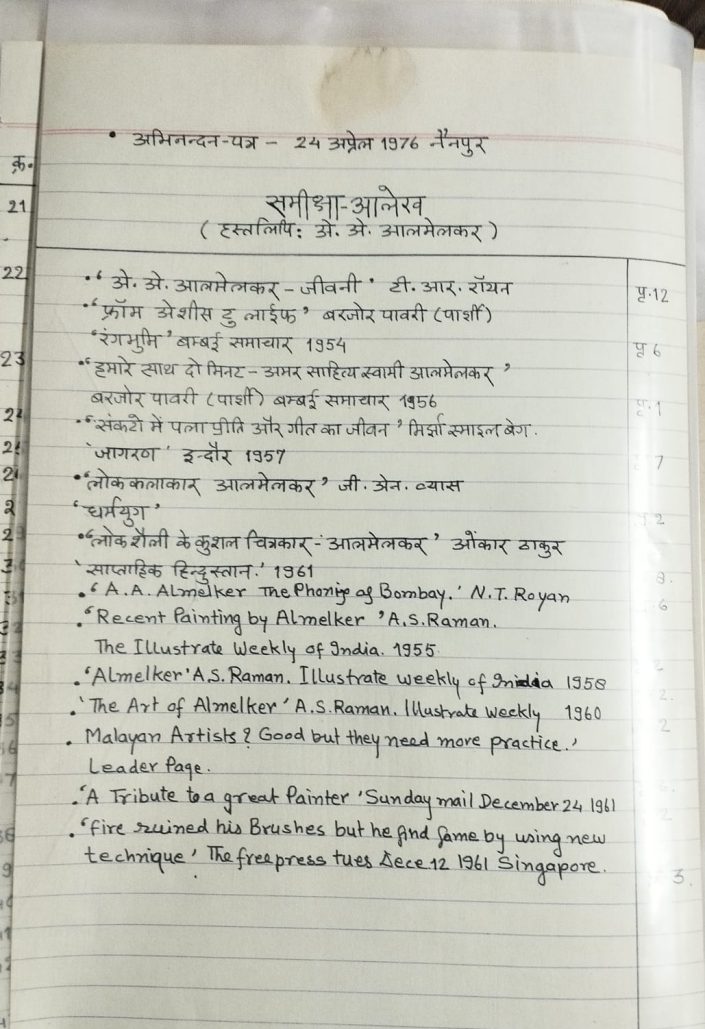 • अभिनन्दन-पत्र - 24 अप्रेल 1976 नैनपुर
क्र.
21
समीक्षा-आलेख
( हस्तलिपि: अे. अे. आलमेलकर )
22
•' अे. अे. आलमेलकर - जीवनी ' टी. आर. रॉयन
पृ.12
•'फ्रॉम अेशीस टु लाईफ' बरजोर पावरी (पार्शी)
'रंगभुमि' बम्बई समाचार 1954
पृ 6
23
•'हमारे साथ दो मिनट - अमर साहित्य स्वामी आलमेलकर '
बरजोर पावरी (पार्शी) बम्बई समाचार 1956
पृ.1
•'संकटो में पला प्रीति और गीत का जीवन ' मिर्झा स्माइल बेग.
'जागरण ' इन्दौर 1957
7
•'लोक कलाकार आलमेलकर' जी. अेन. व्यास
'धर्मयुग'
2
•'लोक शैली के कुशल चित्रकार - आलमेलकर' ओंकार ठाकुर
'साप्ताहिक हिन्दुस्तान.' 1961
•' A.A. Almelker The Phonije of Bombay.' N.T. Royan
6
•'Recent Painting by Almelker 'A.S.Raman.
The Illustrate Weekly of India. 1955.
•'Almelker' A.S. Raman. Illustrate weekly of India 1958
•'The Art of Almelker' A.S.Raman. Illustrate Weekly 1960
2
• Malayan Artists? Good but they need more practice.'
Leader Page.
•'A Tribute to a great Painter 'Sunday mail December 24 1961
•'fire ruined his Brushes but he find fame by using new
technique' The free press tues Dece 12 1961 Singapore.
3.